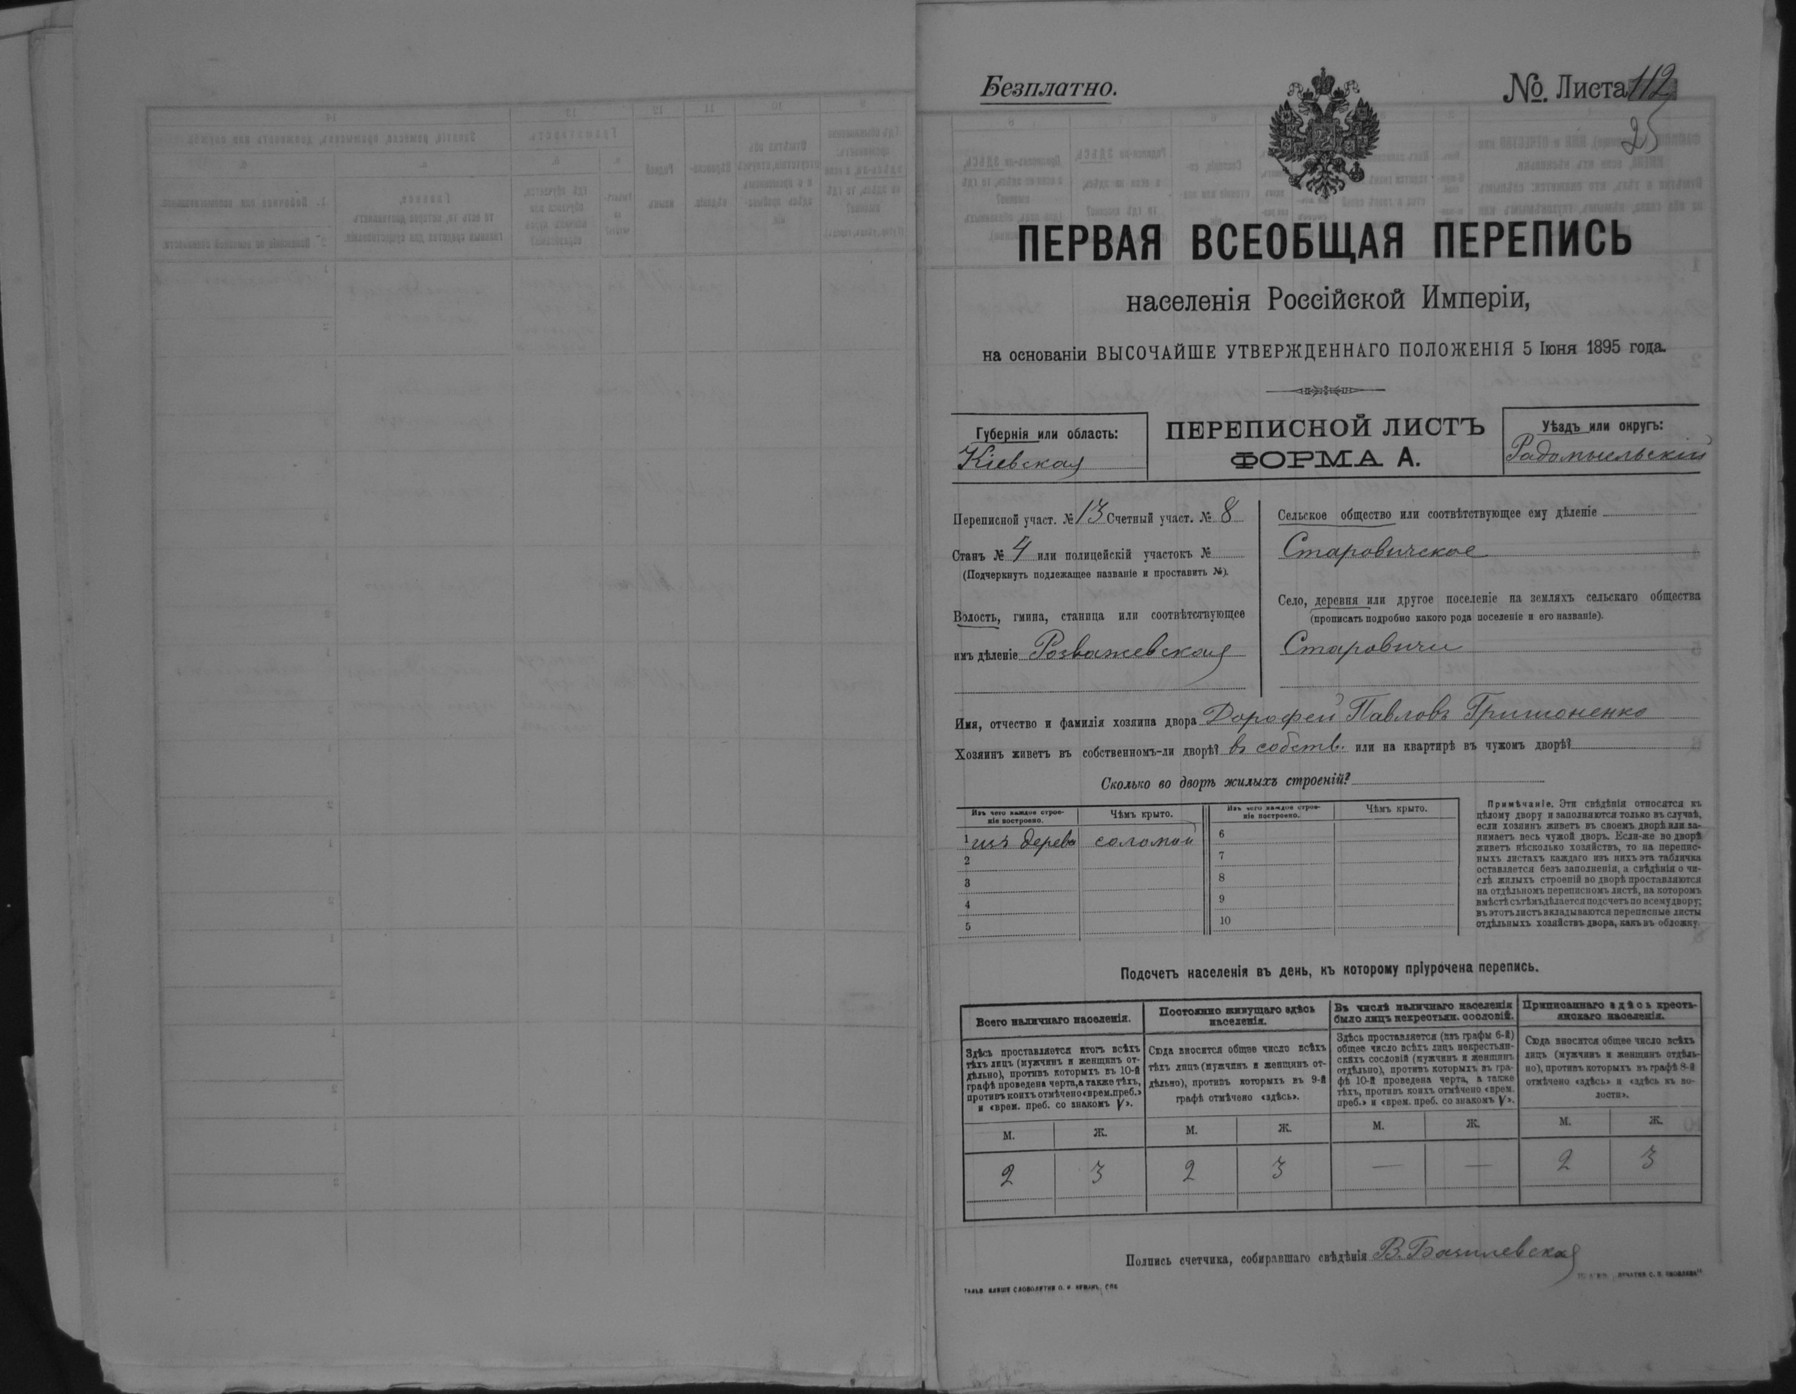 Безплатно.
№. Листа 112
25
ПЕРВАЯ ВСЕОБЩАЯ ПЕРЕПИСЬ
населенія Россійской Имперіи,
на основаніи ВЫСОЧАЙШЕ УТВЕРЖДЕННАГО ПОЛОЖЕНІЯ 5 Іюня 1895 года.
Губернія или область:
Кіевская
ПЕРЕПИСНОЙ ЛИСТЪ
ФОРМА А.
Уѣздъ или округъ:
Радомысльскій
Переписной участ. № 13 Счетный участ. № 8
Станъ № 4 или полицейскій участокъ №
(Подчеркнуть подлежащее названіе и проставить №).
Волость, гмина, станица или соотвѣтствующее
имъ дѣленіе Розважевская
Сельское общество или соотвѣтствующее ему дѣленіе
Старовичское
Село, деревня или другое поселеніе на земляхъ сельскаго общества
(прописать подробно какого рода поселеніе и его названіе).
Старовичи
Имя, отчество и фамилія хозяина двора Дорофей Павловъ Гришоненко
Хозяинъ живетъ въ собственномъ-ли дворѣ? въ собств. или на квартирѣ въ чужомъ дворѣ?
Сколько во дворѣ жилыхъ строеній?
Изъ чего каждое строе-
ніе построено.
Чѣмъ крыто.
Изъ чего каждое строе-
ніе построено.
Чѣмъ крыто.
1 изъ дерева соломой
2
3
4
5
6
7
8
9
10
Примѣчаніе. Эти свѣдѣнія относятся къ
цѣлому двору и заполняются только въ случаѣ,
если хозяинъ живетъ въ своемъ дворѣ или за-
нимаетъ весь чужой дворъ. Если-же во дворѣ
живетъ нѣсколько хозяйствъ, то на перепис-
ныхъ листахъ каждаго изъ нихъ эта табличка
оставляется безъ заполненія, а свѣдѣнія о чи-
слѣ жилыхъ строеній во дворѣ проставляются
на отдѣльномъ переписномъ листѣ, на которомъ
вмѣстѣ съ тѣмъ дѣлается подсчетъ по всему двору;
въ этотъ листъ вкладываются переписные листы
отдѣльныхъ хозяйствъ двора, какъ въ обложку.
Подсчетъ населенія въ день, къ которому пріурочена перепись.
Всего наличнаго населенія.
Здѣсь проставляется итогъ всѣхъ
тѣхъ лицъ (мужчинъ и женщинъ от-
дѣльно), противъ которыхъ въ 10-й
графѣ проведена черта, а также тѣхъ,
противъ коихъ отмѣчено «врем. преб.»
и «врем. преб. со знакомъ V».
Постоянно живущаго здѣсь
населенія.
Сюда вносится общее число всѣхъ
тѣхъ лицъ (мужчинъ и женщинъ от-
дѣльно), противъ которыхъ въ 9-й
графѣ отмѣчено «здѣсь».
Въ числѣ наличнаго населенія
было лицъ некрестьян. сословій.
Здѣсь проставляется (изъ графы 6-й)
общее число всѣхъ лицъ некрестьян-
скихъ сословій (мужчинъ и женщинъ
отдѣльно), противъ которыхъ въ гра-
фѣ 10-й проведена черта, а также
тѣхъ, противъ коихъ отмѣчено «врем.
преб.» и «врем. преб. со знакомъ V».
Приписаннаго здѣсь кресть-
янскаго населенія.
Сюда вносится общее число всѣхъ
лицъ (мужчинъ и женщинъ отдѣль-
но), противъ которыхъ въ графѣ 8-й
отмѣчено «здѣсь» и «здѣсь въ во-
лости».
М. Ж. М. Ж. М. Ж. М. Ж.
2 3 2 3 — — 2 3
Полпись счетчика, собиравшаго свѣдѣнія В. Базилевская